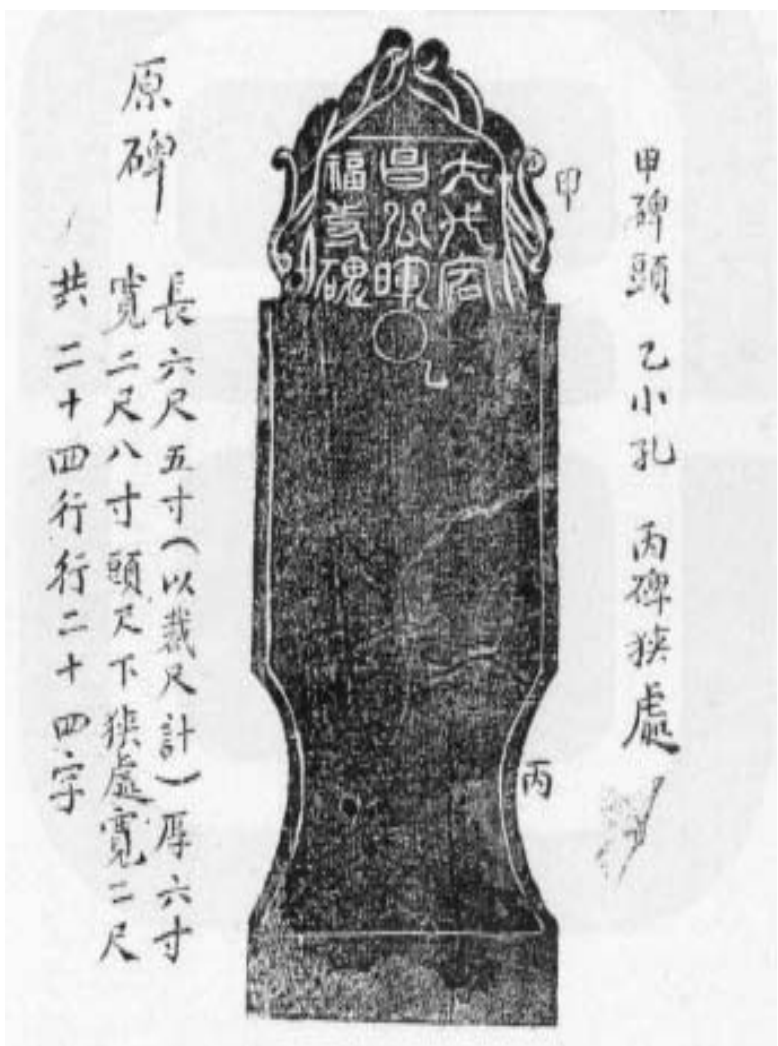 甲碑頭 乙小孔 丙碑狹處
大代宕
昌公暉
福寺碑
乙
丙
原碑
長六尺五寸(以裁尺計)厚六寸
寬二尺八寸頭尺下狹處寬二尺
共二十四行行二十四字